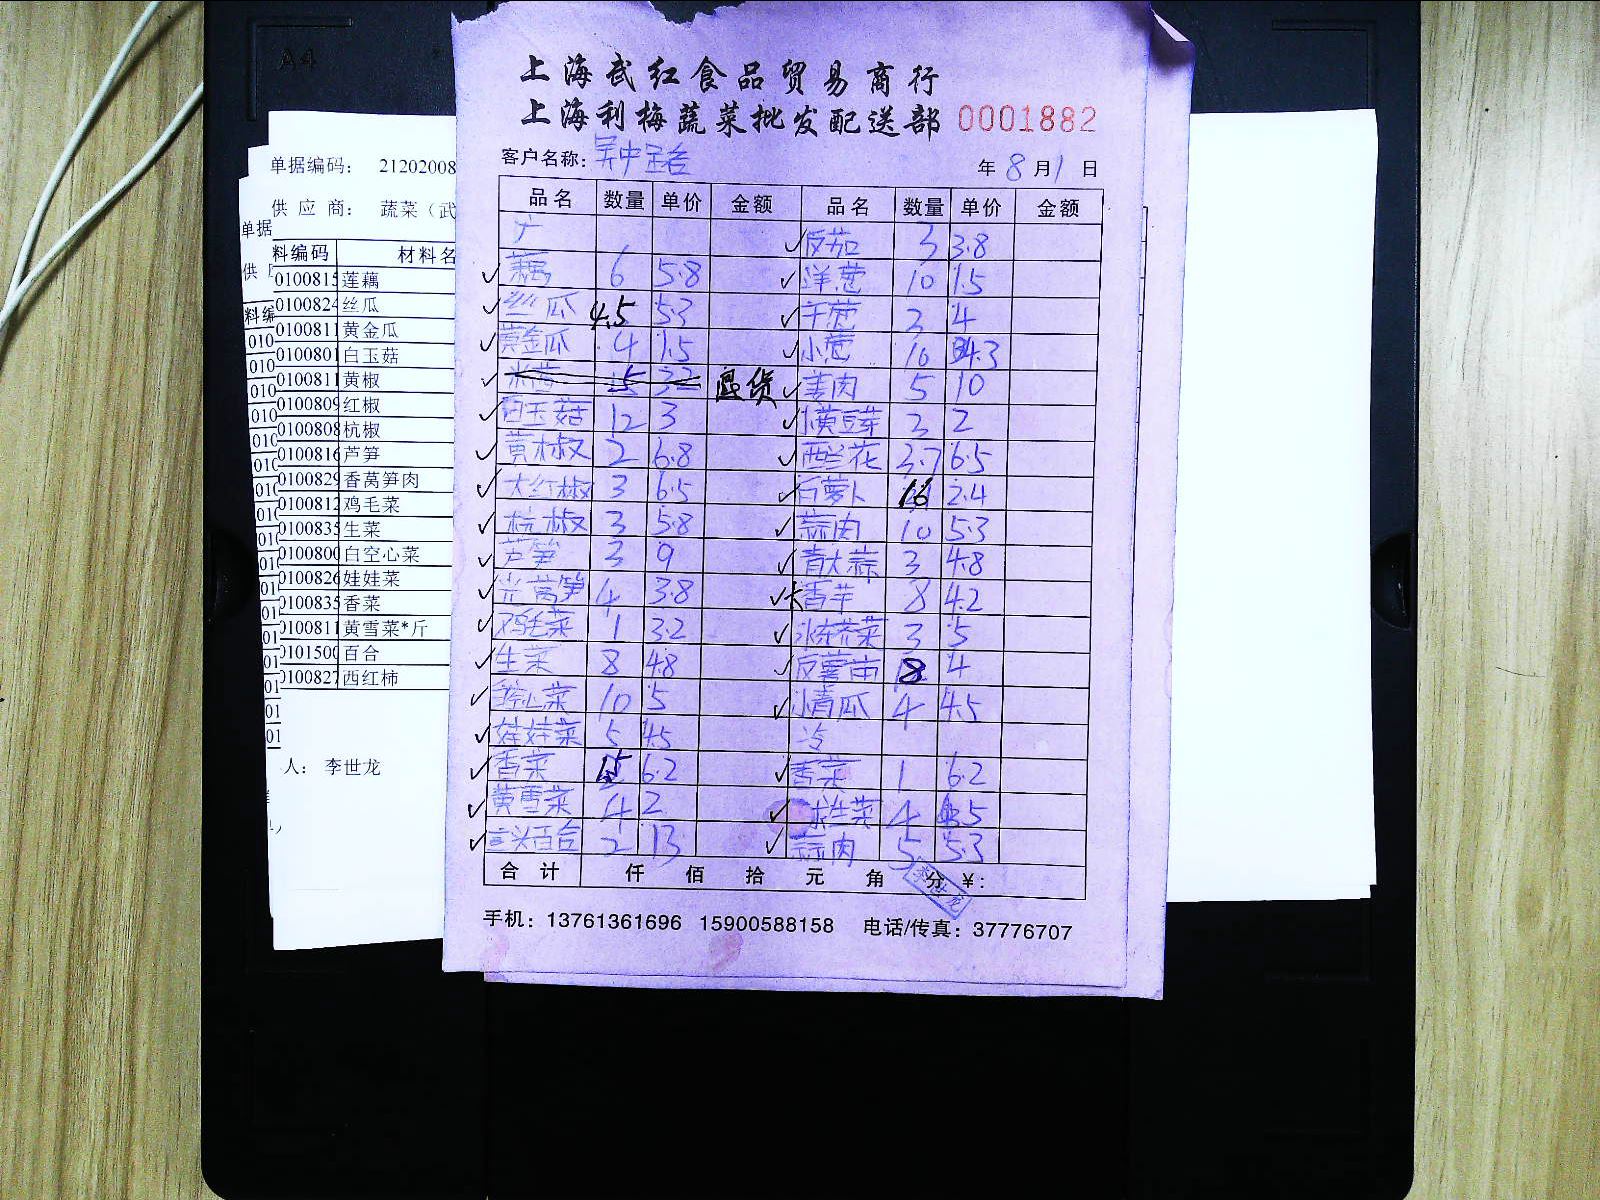 上海武红食品贸易商行
上海利梅蔬菜批发配送部 0001882
客户名称: 年 8 月 1 日
品名 数量 单价 金额 品名 数量 单价 金额
广 番茄 3 3.8
藕 6 5.8 洋葱 10 1.5
丝瓜 4.5 5.3 干葱 2 4
黄金瓜 4 1.5 小葱 10 4.3
米苋 5 退货 姜肉 5 10
白玉菇 12 3 黄豆芽 2 2
黄椒 2 6.8 西兰花 3.7 6.5
大红椒 3 6.5 白萝卜 16 2.4
杭椒 3 5.8 蒜肉 10 5.3
芦笋 3 9 青大蒜 3 4.8
光莴笋 4 3.8 大香芋 8 4.2
鸡毛菜 1 3.2 冰菜 3 5
生菜 8 4.8 番薯苗 8 4
空心菜 10 5 小青瓜 4 4.5
娃娃菜 5 4.5 冷
香菜 6.2 香菜 1 6.2
黄雪菜 4 2 球生菜 4
百合 2 13 蒜肉 5 5.3
合计 仟 佰 拾 元 角 分 ¥:
李世龙
手机: 13761361696 15900588158 电话/传真: 37776707
单据编码: 21202008
供应商: 蔬菜（武
料编码 材料名
0100815 莲藕
0100824 丝瓜
0100811 黄金瓜
0100801 白玉菇
0100811 黄椒
0100809 红椒
0100808 杭椒
0100816 芦笋
0100829 香莴笋肉
0100812 鸡毛菜
0100835 生菜
0100800 白空心菜
0100826 娃娃菜
0100835 香菜
0100811 黄雪菜*斤
0101500 百合
0100827 西红柿
人: 李世龙
单据
供
料编
A4